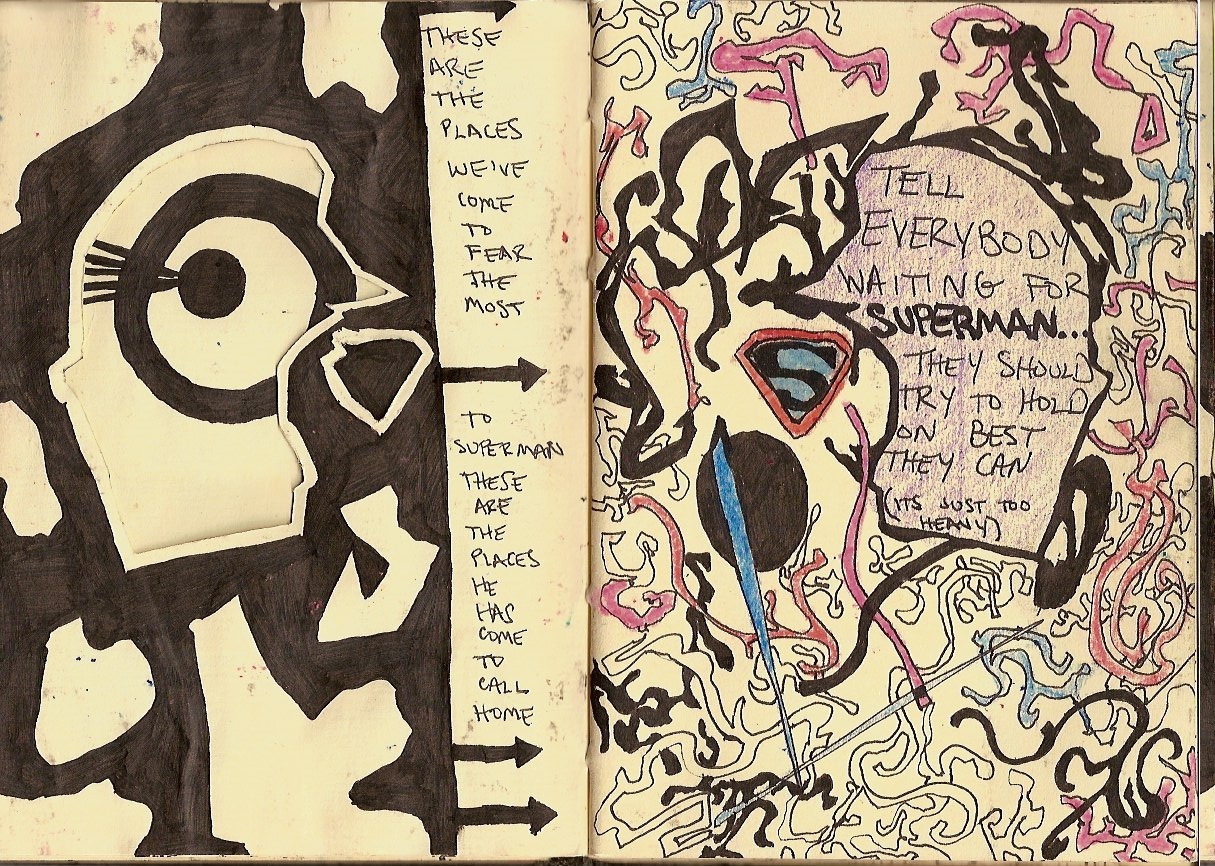 THESE
ARE
THE
PLACES
WE'VE
COME
TO
FEAR
THE
MOST
TO
SUPERMAN
THESE
ARE
THE
PLACES
HE
HAS
COME
TO
CALL
HOME
TELL
EVERYBODY
WAITING FOR
SUPERMAN...
THEY SHOULD
TRY TO HOLD
ON BEST
THEY CAN
(ITS JUST TOO
HEAVY)
S